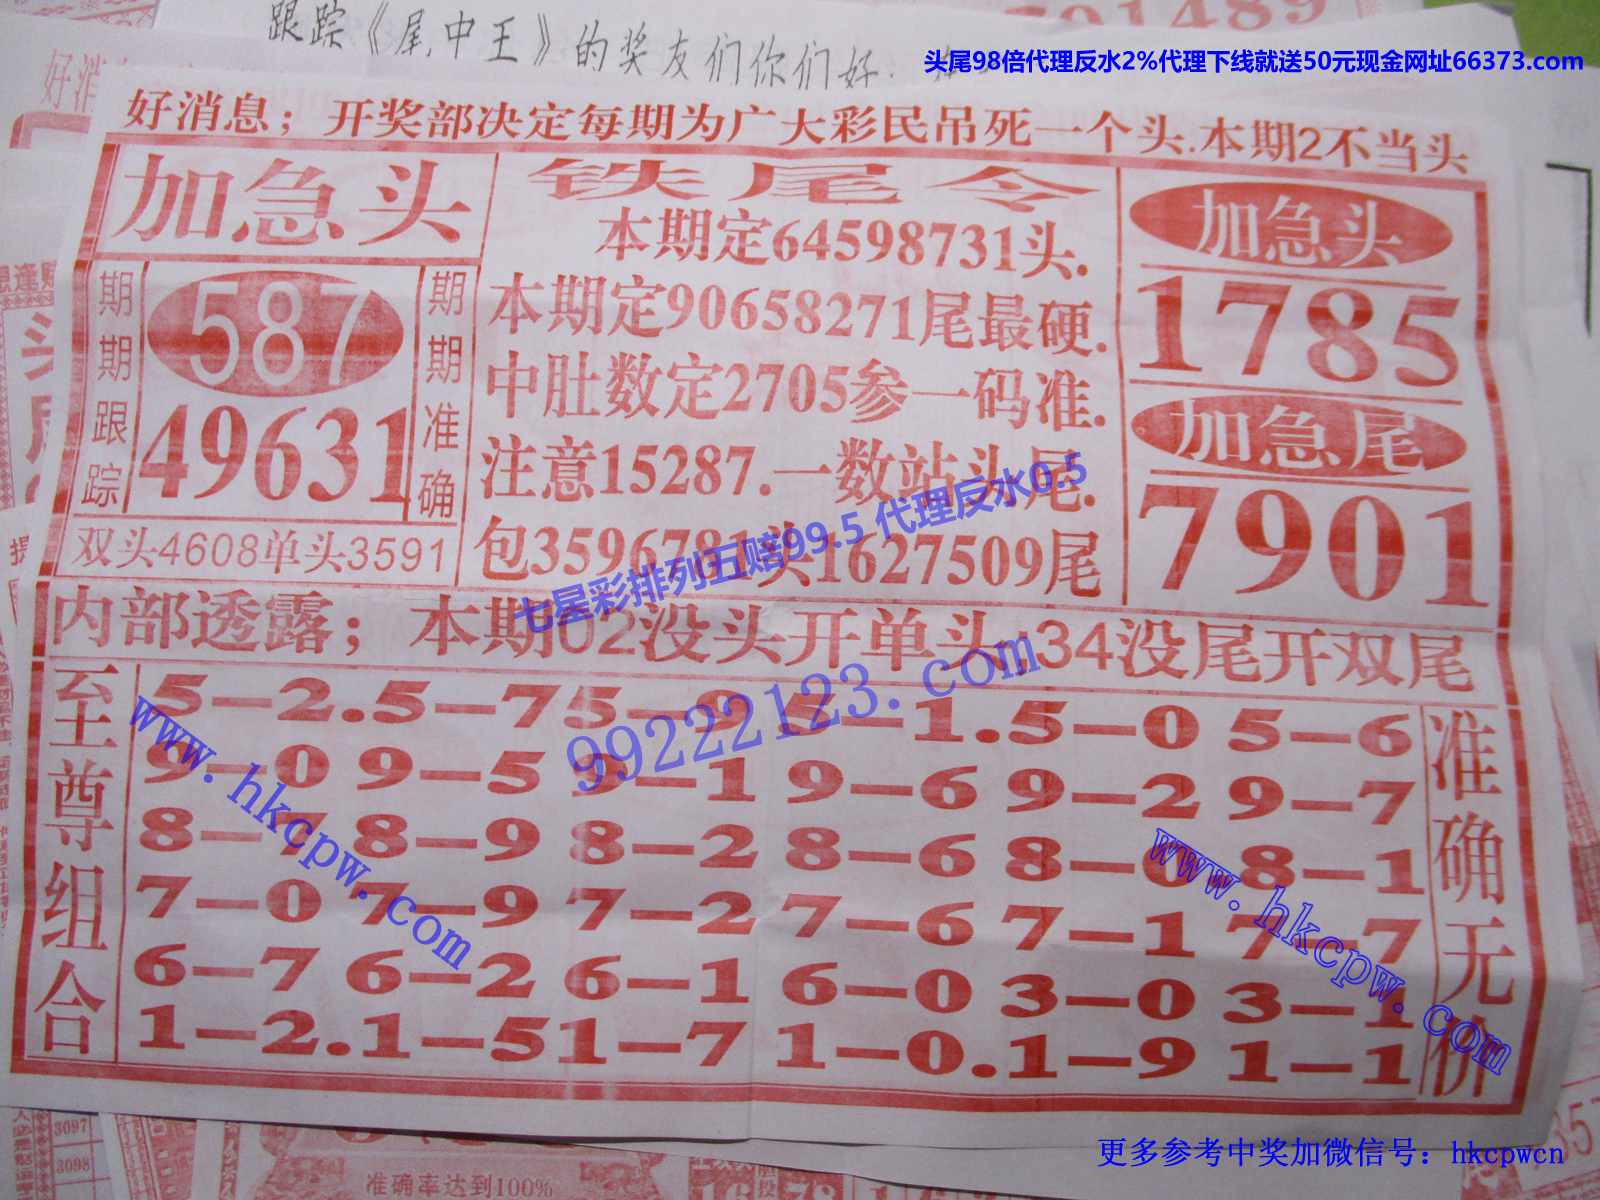 591489
跟踪《尾中王》的奖友们你们好
头尾98倍代理反水2%代理下线就送50元现金网址66373.com
好消
好消息；开奖部决定每期为广大彩民吊死一个头.本期2不当头
加急头
期期跟踪
587
49631
期期准确
双头4608单头3591
铁尾令
本期定64598731头.
本期定90658271尾最硬.
中肚数定2705参一码准.
注意15287.一数站头尾.
包3596781头1627509尾
加急头
1785
加急尾
7901
七星彩排列五赔99.5 代理反水0.5
99222123.com
内部透露；本期02没头开单头.34没尾开双尾
至尊组合
5–2.5–7 5–9 5–1.5–0 5–6
9–0 9–5 9–1 9–6 9–2 9–7
8–7 8–9 8–2 8–6 8–0 8–1
7–0 7–9 7–2 7–6 7–1 7–7
6–7 6–2 6–1 6–0 3–0 3–1
1–2.1–5 1–7 1–0.1–9 1–1
准确无价
www.hkcpw.com
www.hkcpw.com
3097
3098
准确率达到100%
更多参考中奖加微信号：hkcpwcn